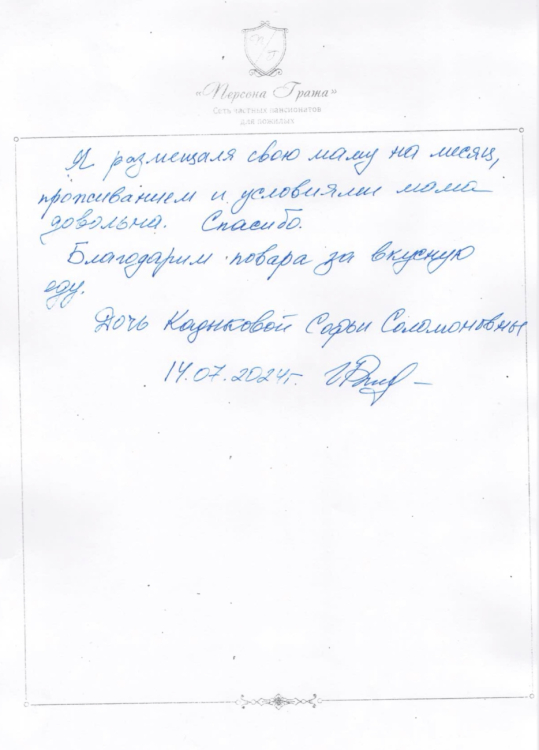 «Персона Грата»
Сеть частных пансионатов
для пожилых
Я размещала свою маму на месяц,
проживанием и условиями мама
довольна. Спасибо.
Благодарим повара за вкусную
еду.
Дочь Софьи Соломоновны
14.07.2024г.